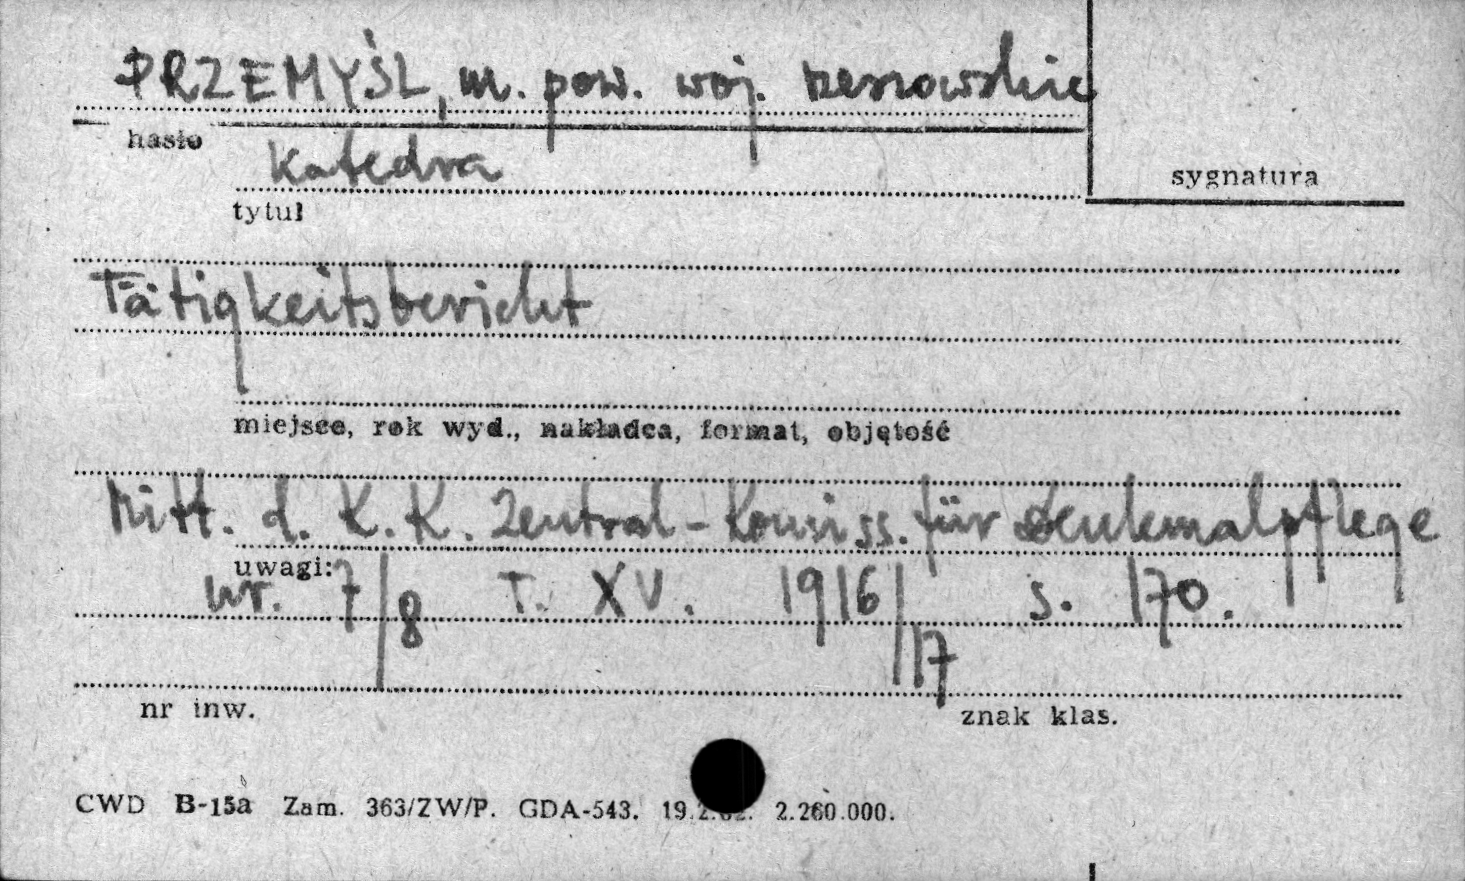 PRZEMYŚL, m. pow. woj. rzeszowskie
hasło
Katedra
sygnatura
tytuł
Tätigkeitsbericht
miejsce, rok wyd., nakładca, format, objętość
Mitt. d. K. K. Zentral-Komiss. für Denkmalpflege
uwagi:
nr. 7/8 T. XV. 1916/17 s. 170.
nr inw.
znak klas.
CWD B-15a Zam. 363/ZW/P. GDA-543. 2.260.000.